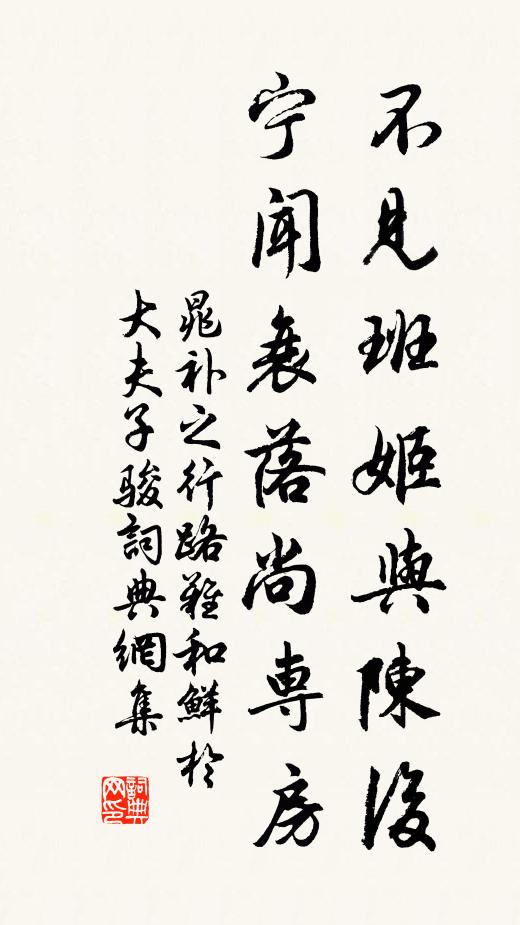 不見班姬與陳後
宁聞衰落尚専房
晁补之行路難和鮮於
大夫子駿詞典網集
詞典网印